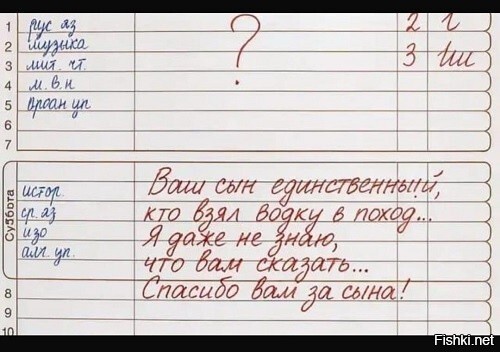 1 рус яз 2 г
2 музыка ?
3 лит. чт. 3 Ши
4 м. в. н
5
6
7
Суббота
истор.
ср. яз
изо
алг. ур.
Ваш сын единственный,
кто взял водку в поход...
Я даже не знаю,
что вам сказать...
8 Спасибо вам за сына!
9
10
Fishki.net